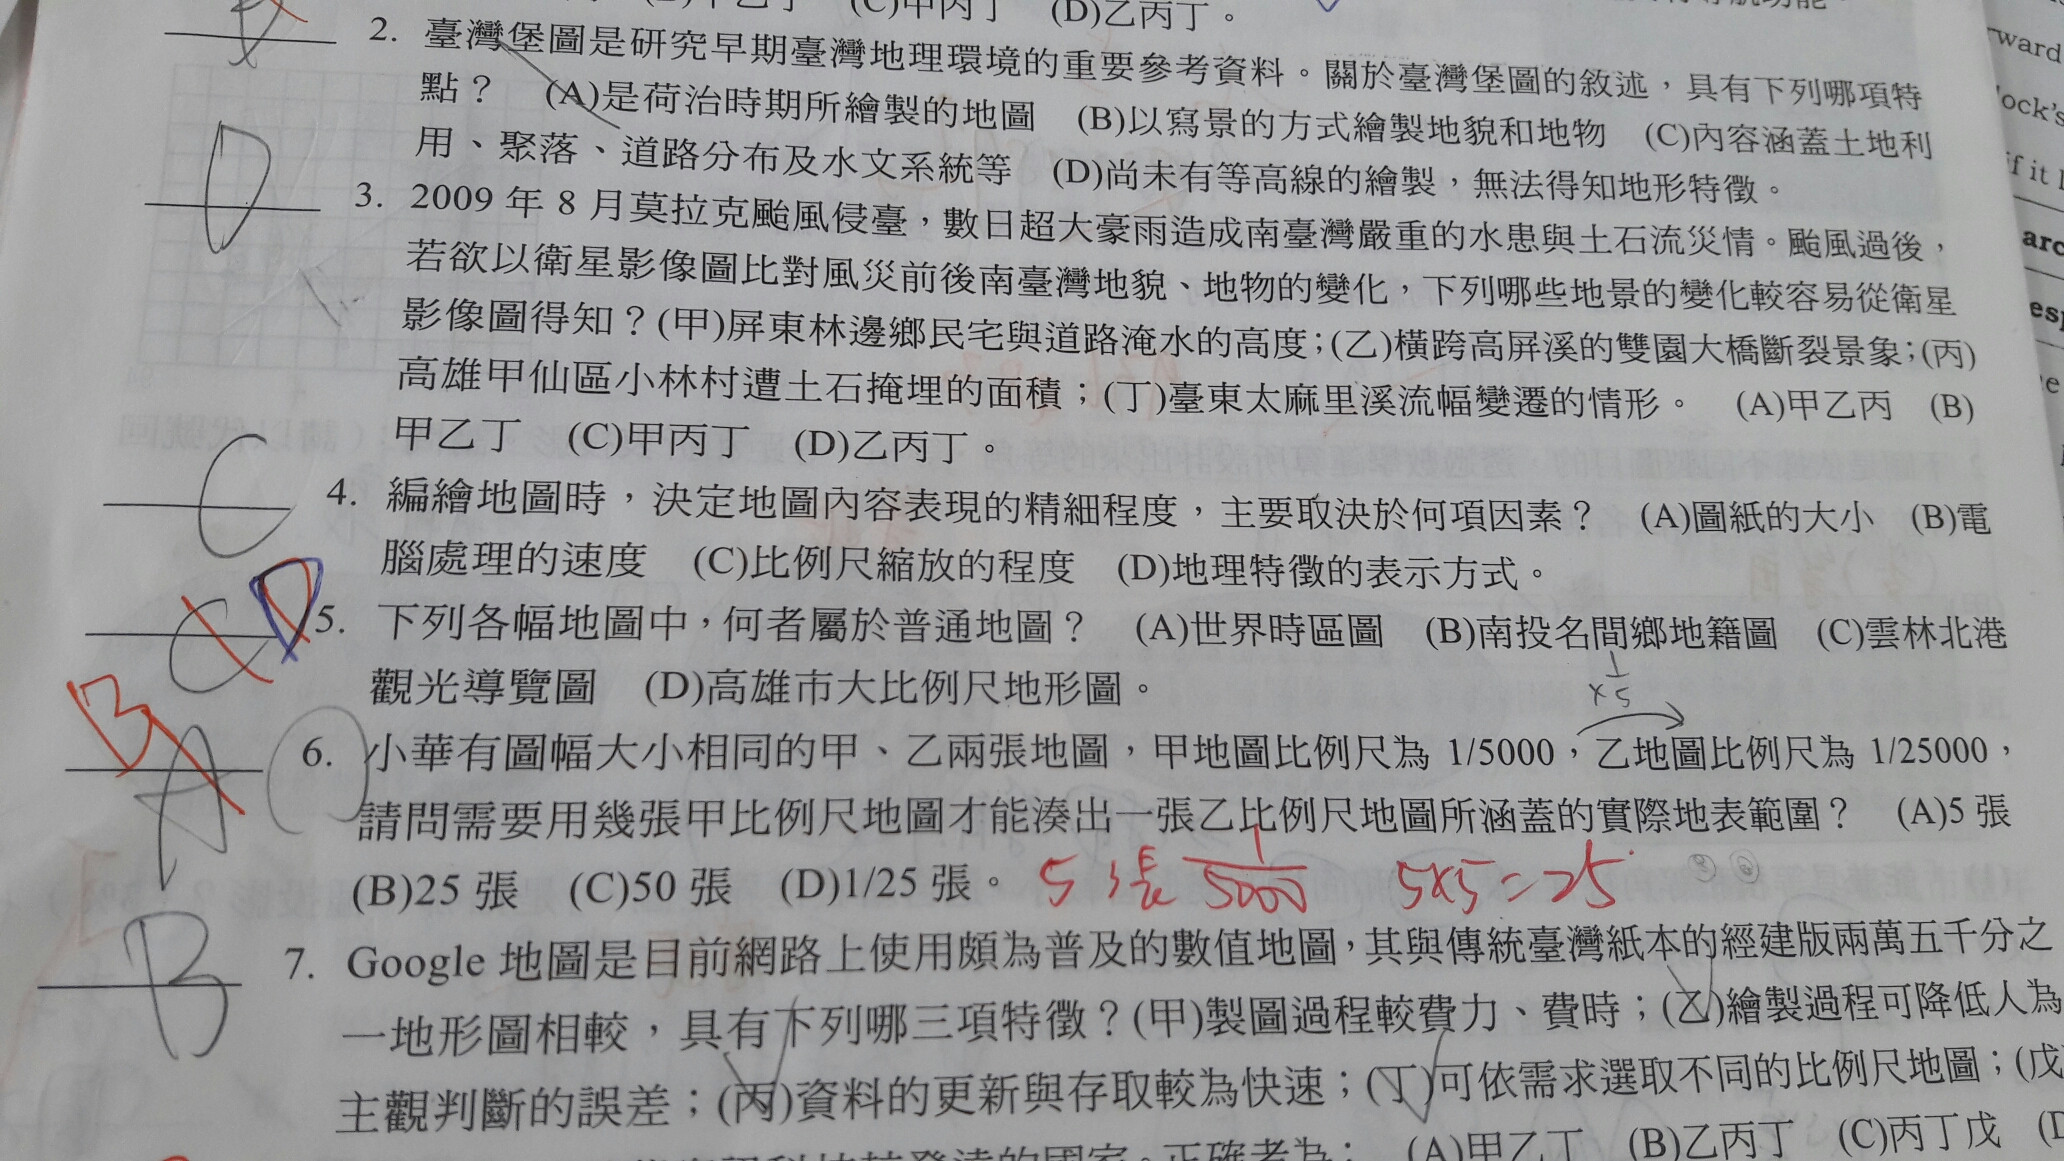 (C)甲丙丁 (D)乙丙丁。
2. 臺灣堡圖是研究早期臺灣地理環境的重要參考資料。關於臺灣堡圖的敘述，具有下列哪項特
點？ (A)是荷治時期所繪製的地圖 (B)以寫景的方式繪製地貌和地物 (C)內容涵蓋土地利
用、聚落、道路分布及水文系統等 (D)尚未有等高線的繪製，無法得知地形特徵。
D
3. 2009 年 8 月莫拉克颱風侵臺，數日超大豪雨造成南臺灣嚴重的水患與土石流災情。颱風過後，
若欲以衛星影像圖比對風災前後南臺灣地貌、地物的變化，下列哪些地景的變化較容易從衛星
影像圖得知？(甲)屏東林邊鄉民宅與道路淹水的高度；(乙)橫跨高屏溪的雙園大橋斷裂景象；(丙)
高雄甲仙區小林村遭土石掩埋的面積；(丁)臺東太麻里溪流幅變遷的情形。 (A)甲乙丙 (B)
甲乙丁 (C)甲丙丁 (D)乙丙丁。
C
4. 編繪地圖時，決定地圖內容表現的精細程度，主要取決於何項因素？ (A)圖紙的大小 (B)電
腦處理的速度 (C)比例尺縮放的程度 (D)地理特徵的表示方式。
C D
5. 下列各幅地圖中，何者屬於普通地圖？ (A)世界時區圖 (B)南投名間鄉地籍圖 (C)雲林北港
觀光導覽圖 (D)高雄市大比例尺地形圖。
×1/5
B A
6. 小華有圖幅大小相同的甲、乙兩張地圖，甲地圖比例尺為 1/5000，乙地圖比例尺為 1/25000，
請問需要用幾張甲比例尺地圖才能湊出一張乙比例尺地圖所涵蓋的實際地表範圍？ (A)5 張
(B)25 張 (C)50 張 (D)1/25 張。 5張 1/5000 5×5=25
B
7. Google 地圖是目前網路上使用頗為普及的數值地圖，其與傳統臺灣紙本的經建版兩萬五千分之
一地形圖相較，具有下列哪三項特徵？(甲)製圖過程較費力、費時；(乙)繪製過程可降低人為
主觀判斷的誤差；(丙)資料的更新與存取較為快速；(丁)可依需求選取不同的比例尺地圖；(戊)
(A)甲乙丁 (B)乙丙丁 (C)丙丁戊